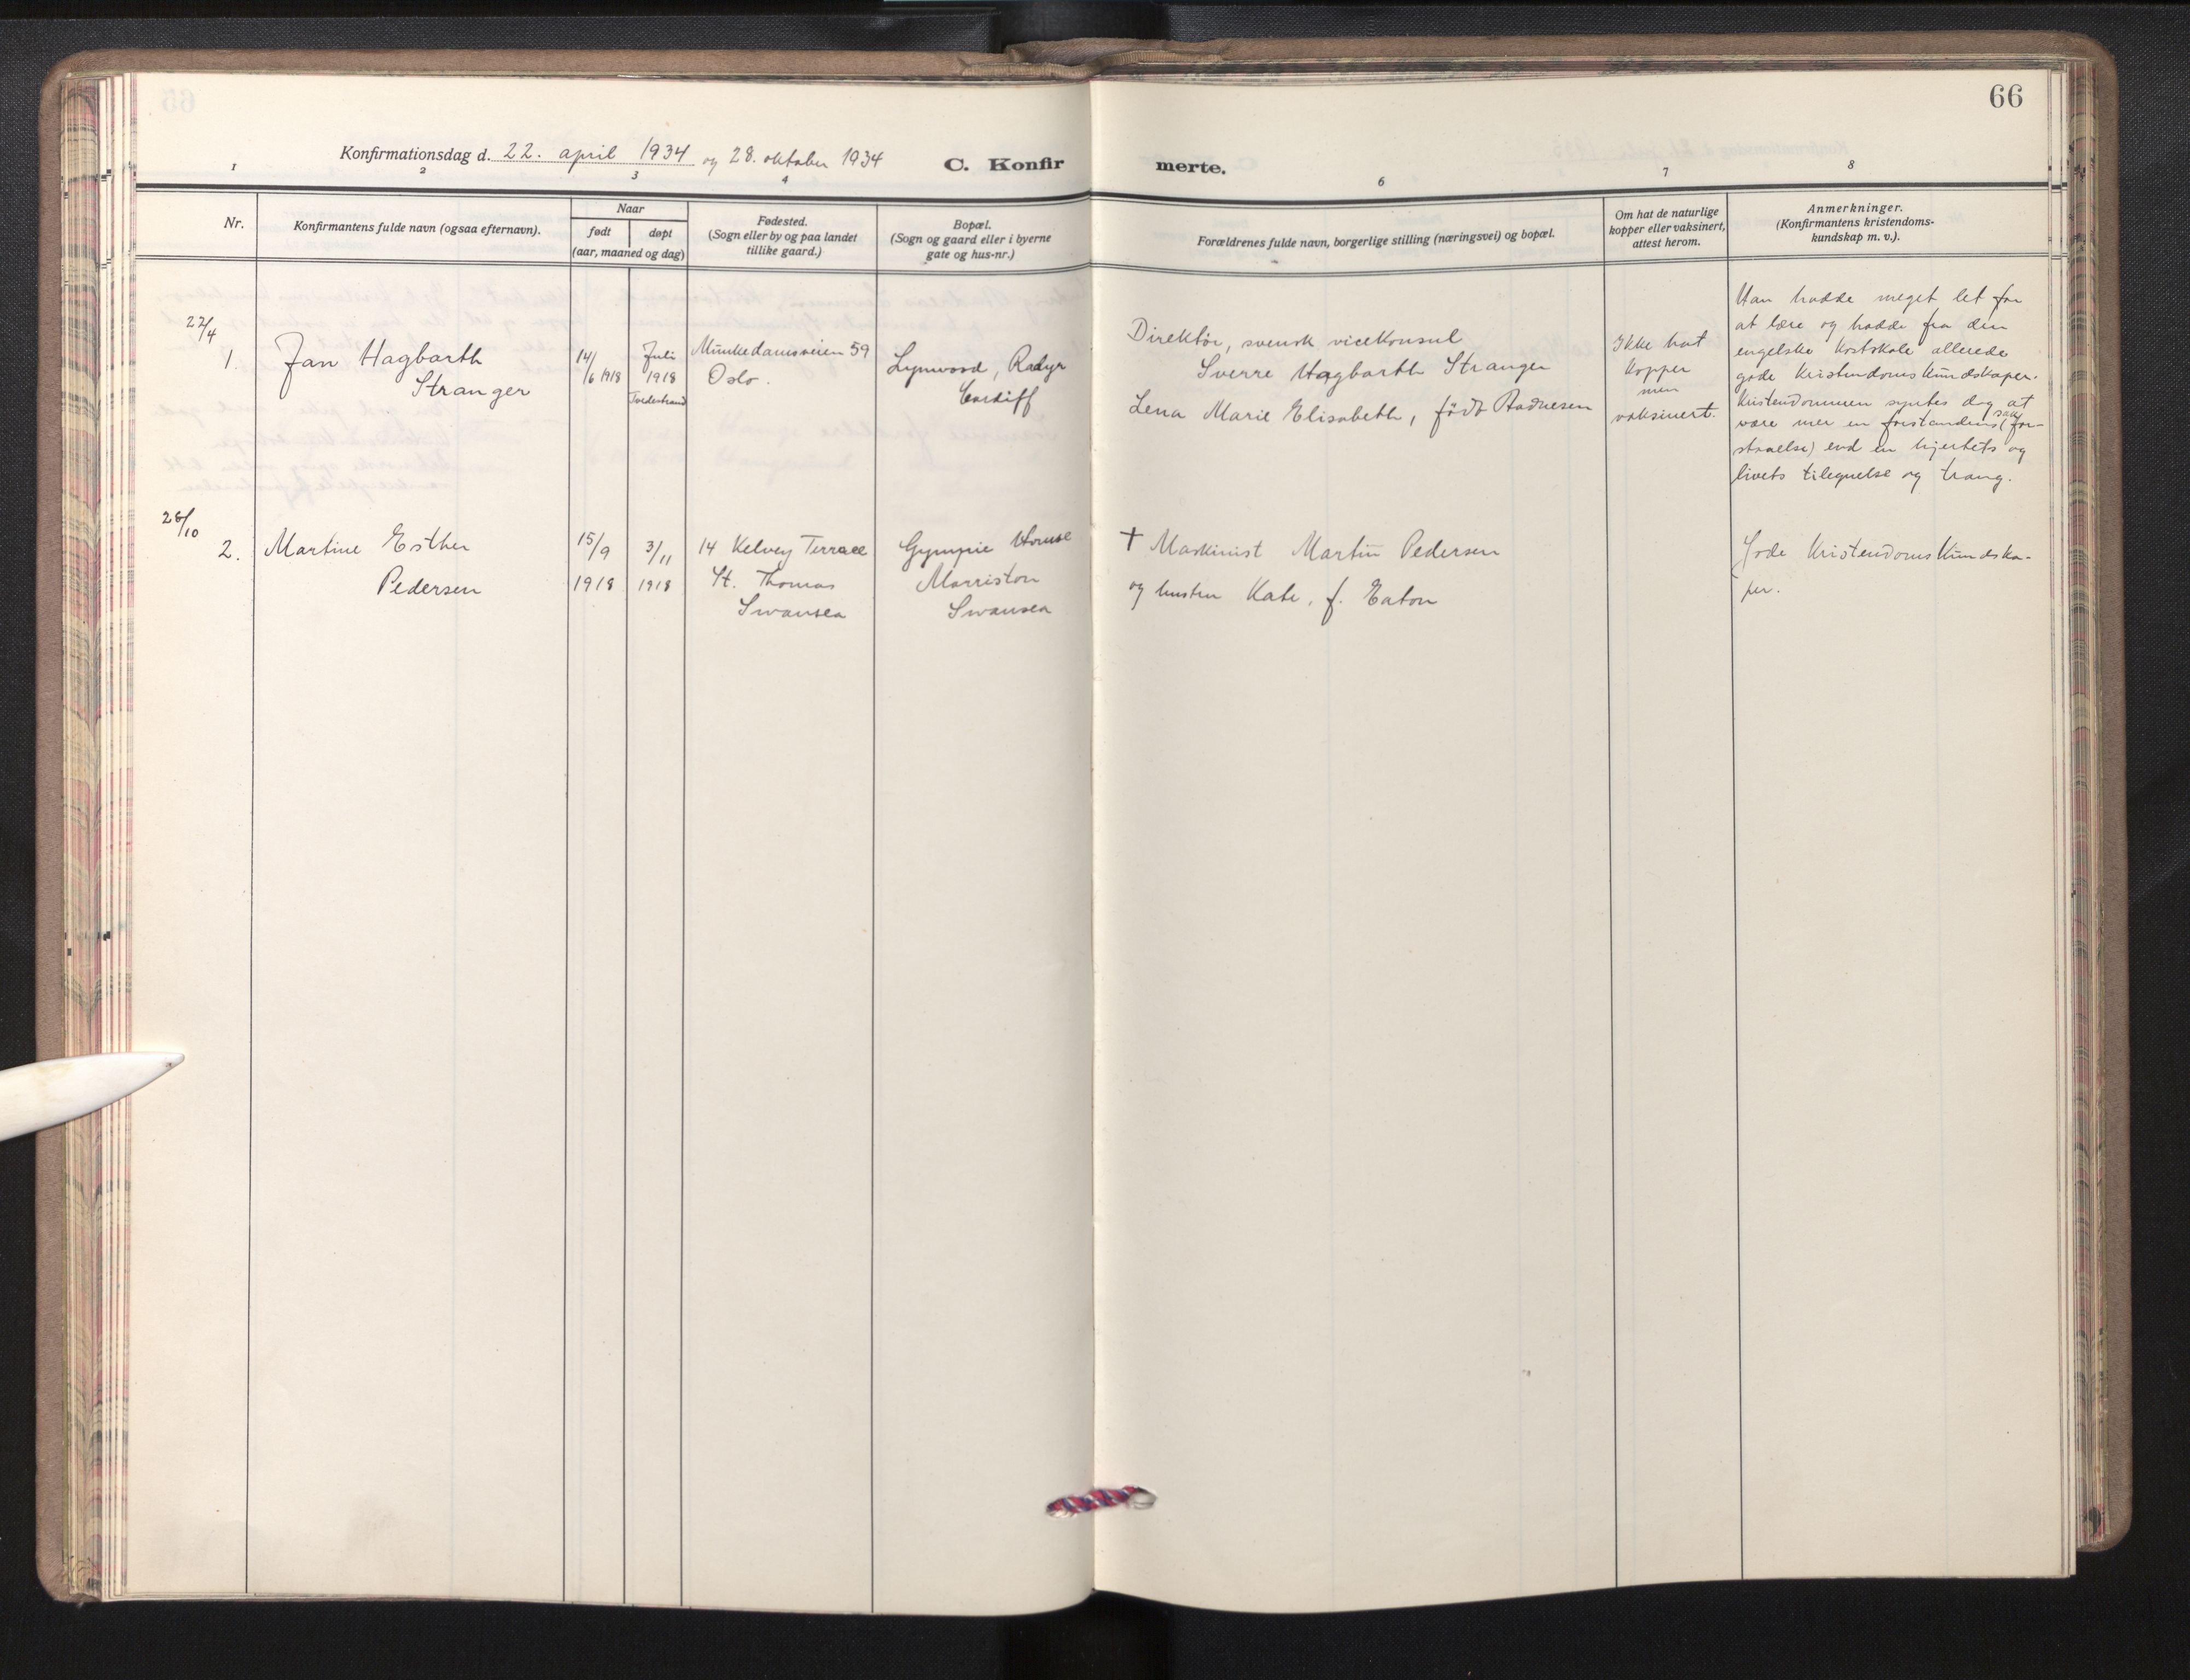 66
Konfirmationsdag d. 22. april 1934 og 28. oktober 1934
C. Konfirmerte.
1 2 3 4 6 7 8
Nr.
Konfirmantens fulde navn (ogsaa efternavn).
Naar
født
døpt
(aar, maaned og dag)
Fødested.
(Sogn eller by og paa landet
tillike gaard.)
Bopæl.
(Sogn og gaard eller i byerne
gate og hus-nr.)
Forældrenes fulde navn, borgerlige stilling (næringsvei) og bopæl.
Om hat de naturlige
kopper eller vaksinert,
attest herom.
Anmerkninger.
(Konfirmantens kristendoms-
kundskap m. v.).
22/4
1.
Jan Hagbarth
Stranger
14/
/6 1918
Juli
1918
Tvedestrand
Munkedamsveien 59
Oslo.
Lynwood, Radyr
Cardiff
Direktør, svensk vicekonsul
Sverre Hagbarth Stranger
Lena Marie Elisabeth, født Aadnesen
Ikke hat
kopper
men
vaksinert.
Han hadde meget let for
at lære og hadde fra den
engelske kostskole allerede
gode kristendomskundskaper.
Kristendommen syntes dog at
være mer en forstandens sak (for-
staaelse) end en hjertets og
livets tilegnelse og trang.
28/10
2.
Martine Esther
Pedersen
15/9
1918
3/11
1918
14 Kelvey Terrace
St. Thomas
Swansea
Gympie House
Morriston
Swansea
† Maskinist Martin Pedersen
og hustru Kate, f. Eaton
Gode kristendomskundska-
per.